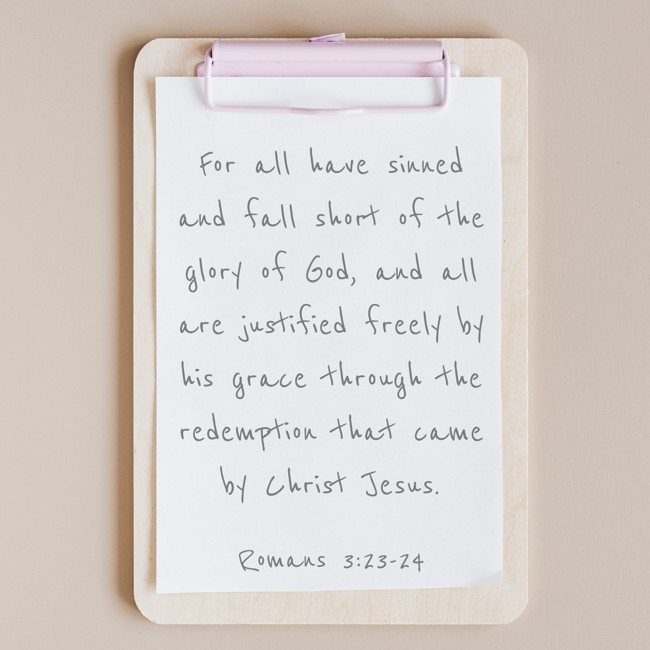 For all have sinned
and fall short of the
glory of God, and all
are justified freely by
his grace through the
redemption that came
by Christ Jesus.
Romans 3:23-24